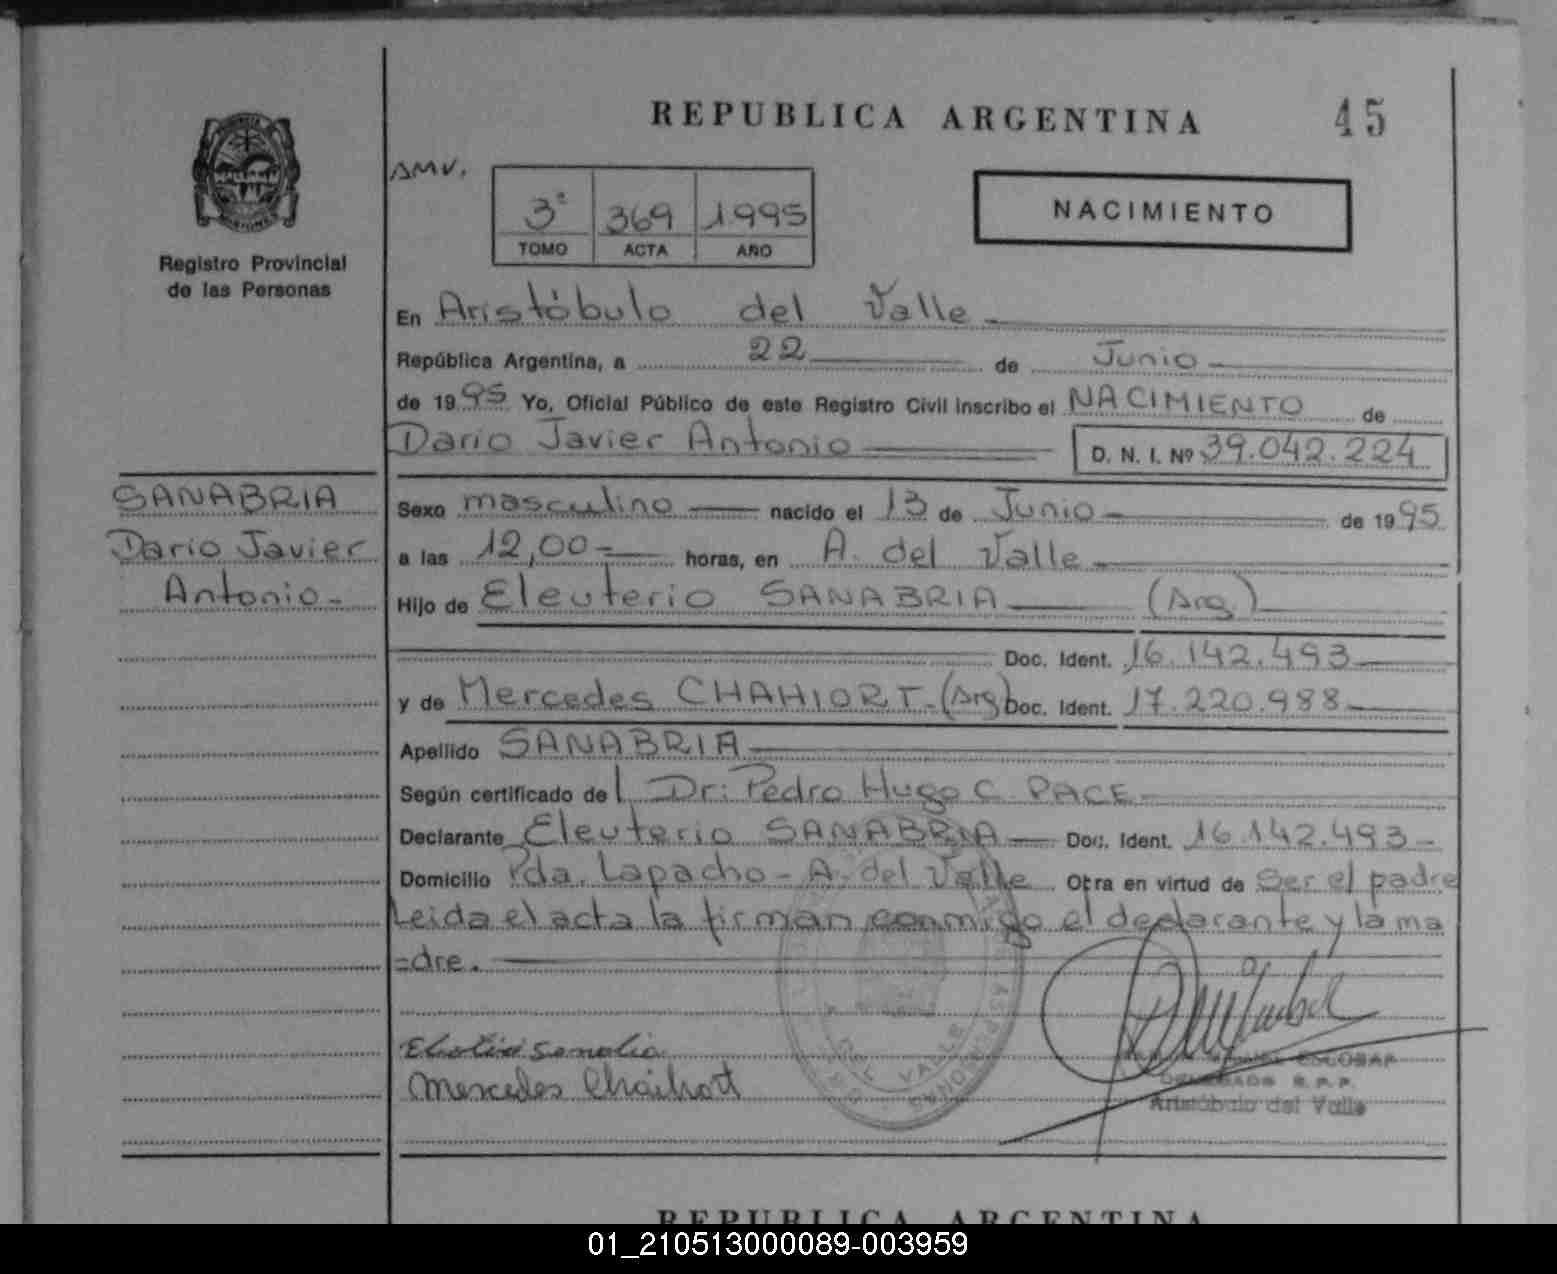 REPUBLICA ARGENTINA 45
Registro Provincial
de las Personas
AMV.
3º 369 1995
TOMO ACTA AÑO
NACIMIENTO
En Aristóbulo del Valle
República Argentina, a 22 de Junio
de 1995 Yo, Oficial Público de este Registro Civil inscribo el NACIMIENTO de
Dario Javier Antonio D. N. I. Nº 39.042.224
SANABRIA
Dario Javier
Antonio-
Sexo masculino nacido el 13 de Junio de 1995
a las 12,00 horas, en A. del Valle
Hijo de Eleuterio SANABRIA (Arg.)
Doc. Ident. 16.142.493
y de Mercedes CHAHIORT. (Arg) Doc. Ident. 17.220.988
Apellido SANABRIA
Según certificado del Dr: Pedro Hugo C. PACE
Declarante Eleuterio SANABRIA Doc. Ident. 16.142.493
Domicilio Pda. Lapacho - A. del Valle Obra en virtud de Ser el padre
Leida el acta la firman conmigo el declarante y la ma
=dre.
Mercedes Chaihort
ESCOBAR
DELEGADO R.P.P.
Aristóbulo del Valle
A. DEL VALLE
REPUBLICA ARGENTINA
01_210513000089-003959